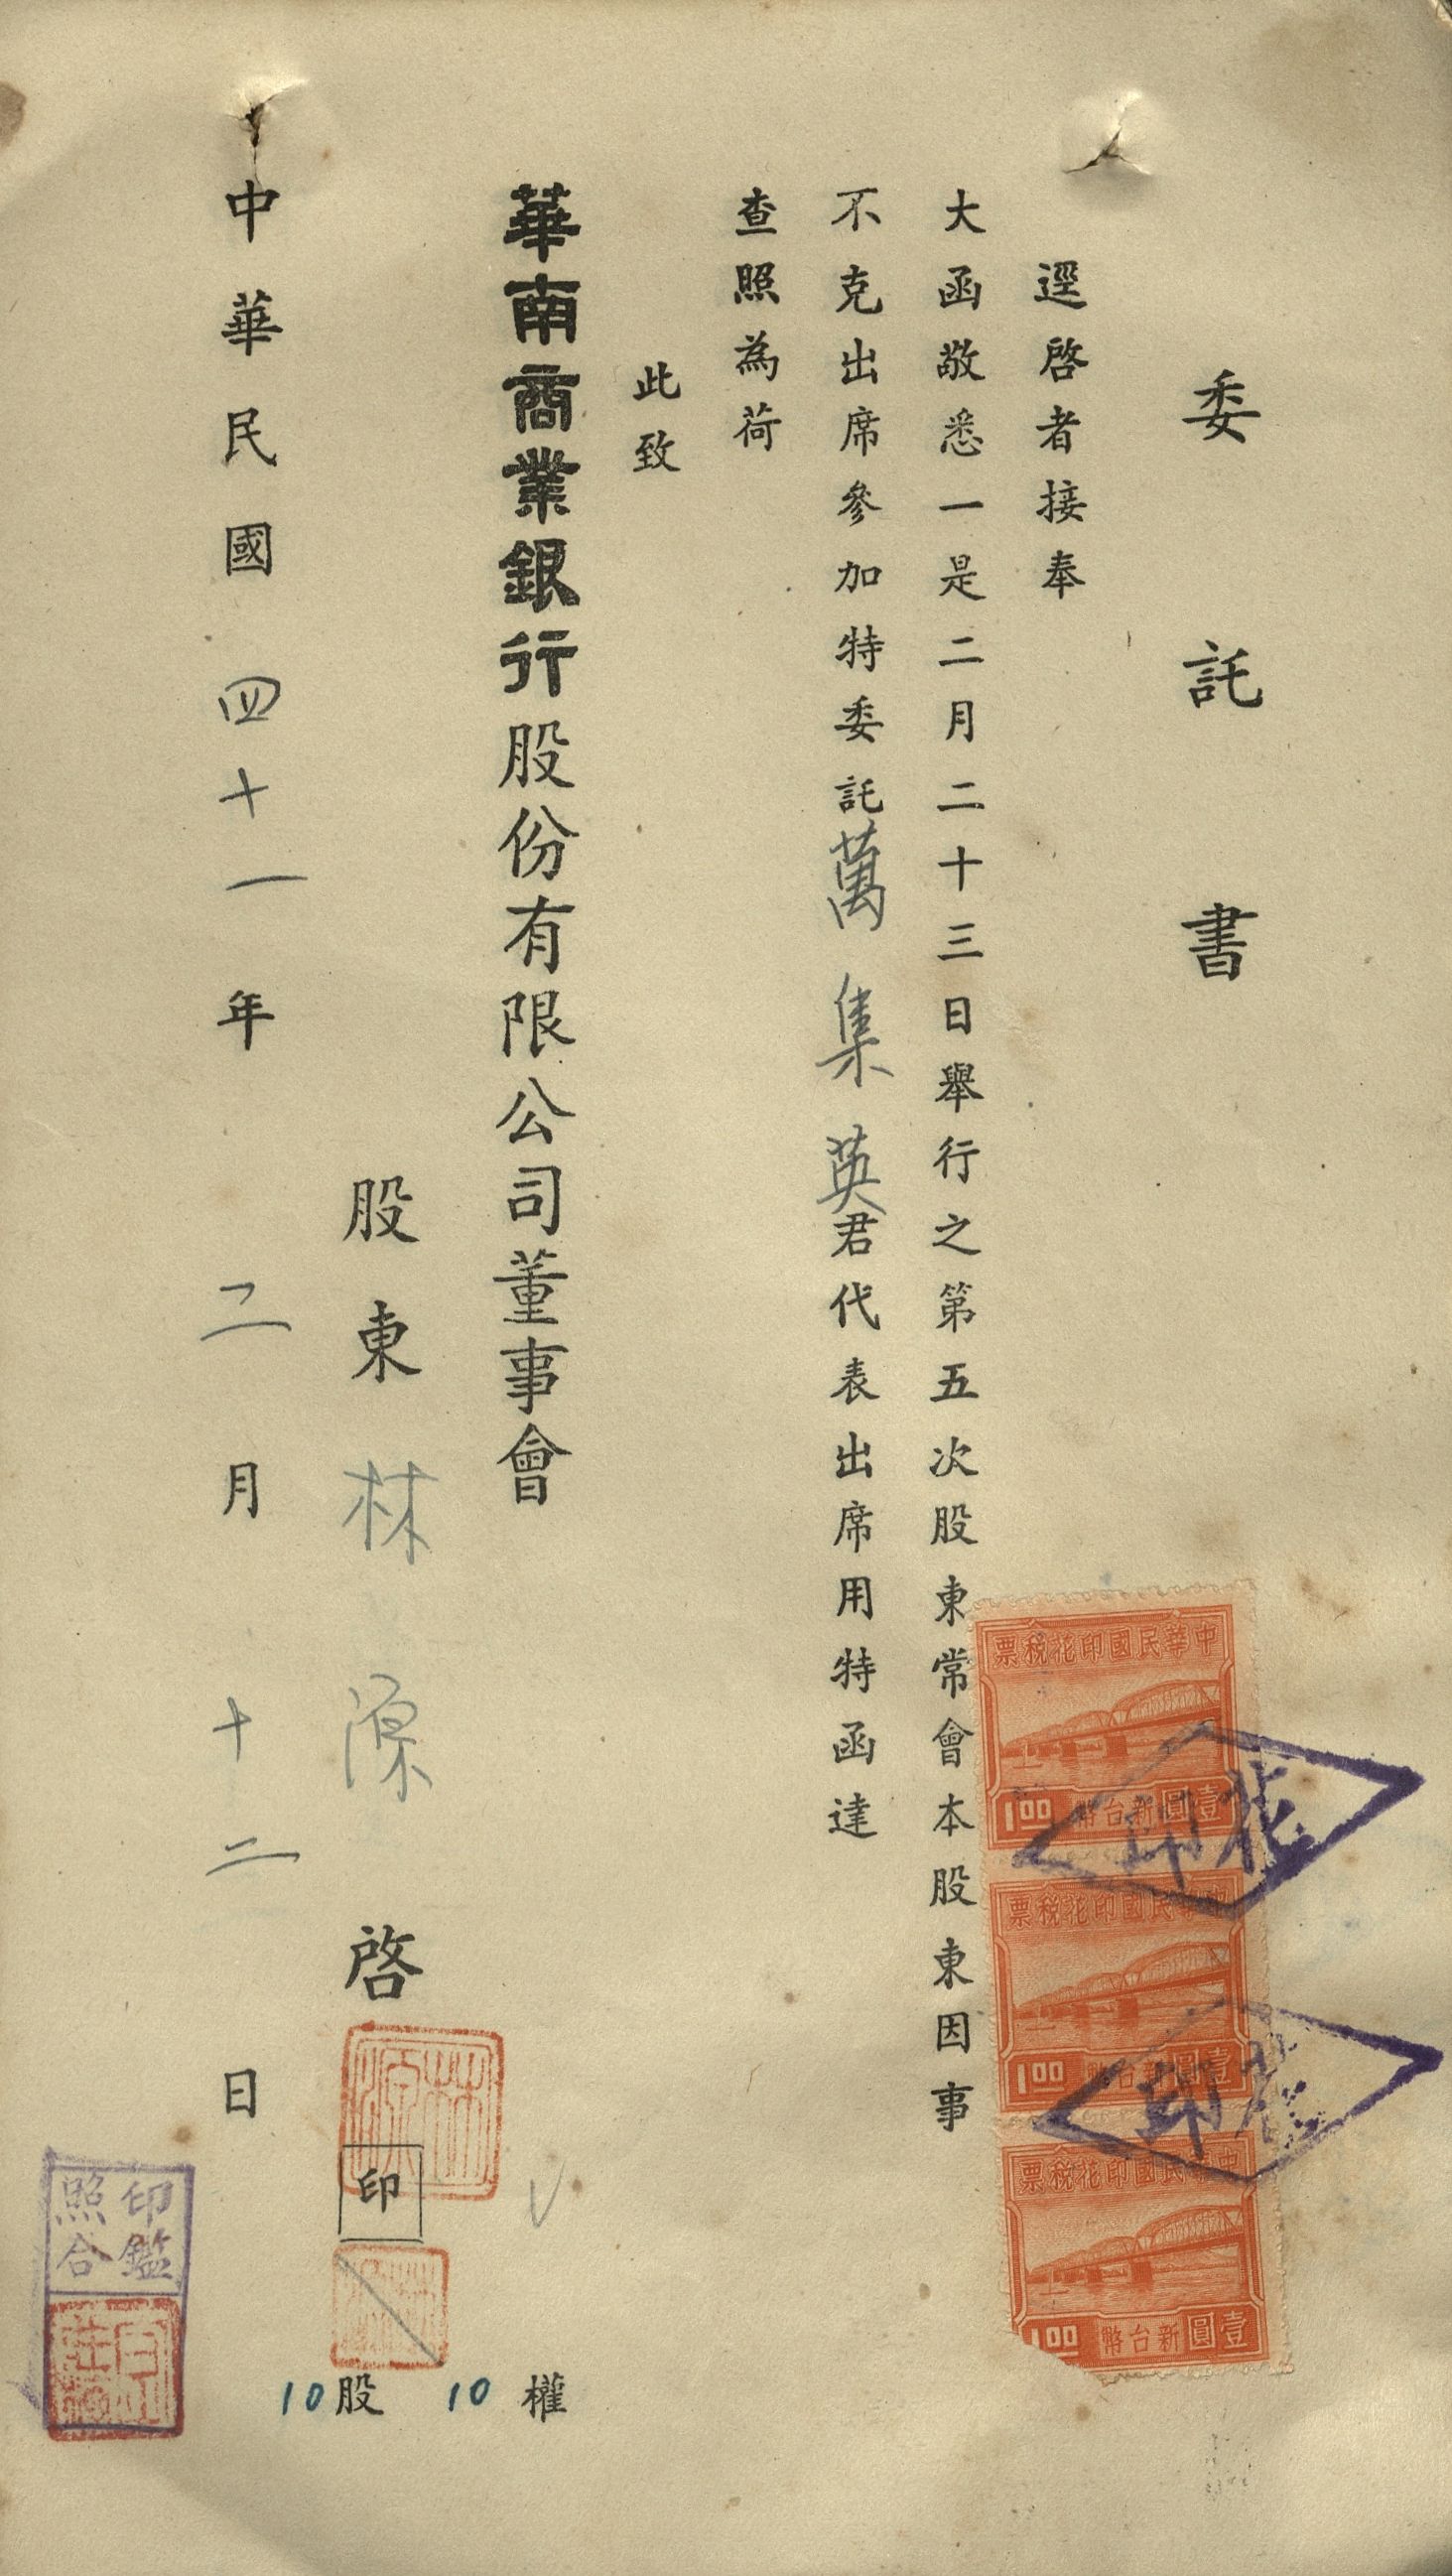 委託書
逕啓者接奉
大函敬悉一是二月二十三日舉行之第五次股東常會本股東因事
不克出席參加特委託萬集英君代表出席用特函達
查照為荷
此致
華南商業銀行股份有限公司董事會
股東林源啓
印
10股 10權
中華民國四十一年二月十二日
中華民國印花稅票
壹圓新台幣
1.00
中華民國印花稅票
壹圓新台幣
1.00
中華民國印花稅票
壹圓新台幣
1.00
印花
印花
林源
印鑑
照合